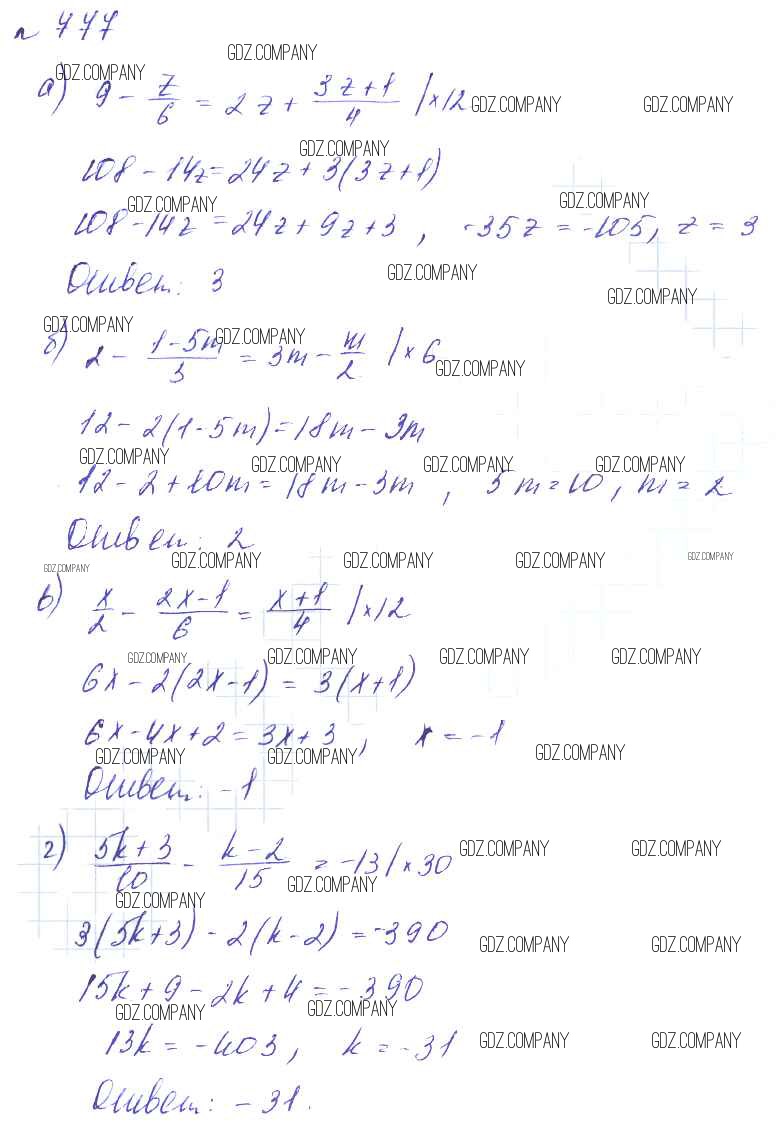 № 777
GDZ.COMPANY
GDZ.COMPANY
а) 9 - z/6 = 2z + (3z+1)/4 | ×12
GDZ.COMPANY GDZ.COMPANY
GDZ.COMPANY
108 - 14z = 24z + 3(3z+1)
GDZ.COMPANY GDZ.COMPANY
108 - 14z = 24z + 9z + 3 , -35z = -105, z = 3
Ответ: 3
GDZ.COMPANY
GDZ.COMPANY
GDZ.COMPANY GDZ.COMPANY
б) 2 - (1-5m)/3 = 3m - m/2 | × 6
GDZ.COMPANY
12 - 2(1-5m) = 18m - 3m
GDZ.COMPANY GDZ.COMPANY GDZ.COMPANY GDZ.COMPANY
12 - 2 + 10m = 18m - 3m , 5m = 10, m = 2
Ответ: 2
GDZ.COMPANY GDZ.COMPANY GDZ.COMPANY GDZ.COMPANY GDZ.COMPANY
в) x/2 - (2x-1)/6 = (x+1)/4 | ×12
GDZ.COMPANY GDZ.COMPANY GDZ.COMPANY GDZ.COMPANY
6x - 2(2x-1) = 3(x+1)
6x - 4x + 2 = 3x + 3 , x = -1
GDZ.COMPANY GDZ.COMPANY GDZ.COMPANY
Ответ: -1
г) (5k+3)/10 - (k-2)/15 = -13 | ×30
GDZ.COMPANY GDZ.COMPANY
GDZ.COMPANY
GDZ.COMPANY
3(5k+3) - 2(k-2) = -390
GDZ.COMPANY GDZ.COMPANY
15k + 9 - 2k + 4 = -390
GDZ.COMPANY GDZ.COMPANY
13k = -403, k = -31
GDZ.COMPANY GDZ.COMPANY
Ответ: -31.